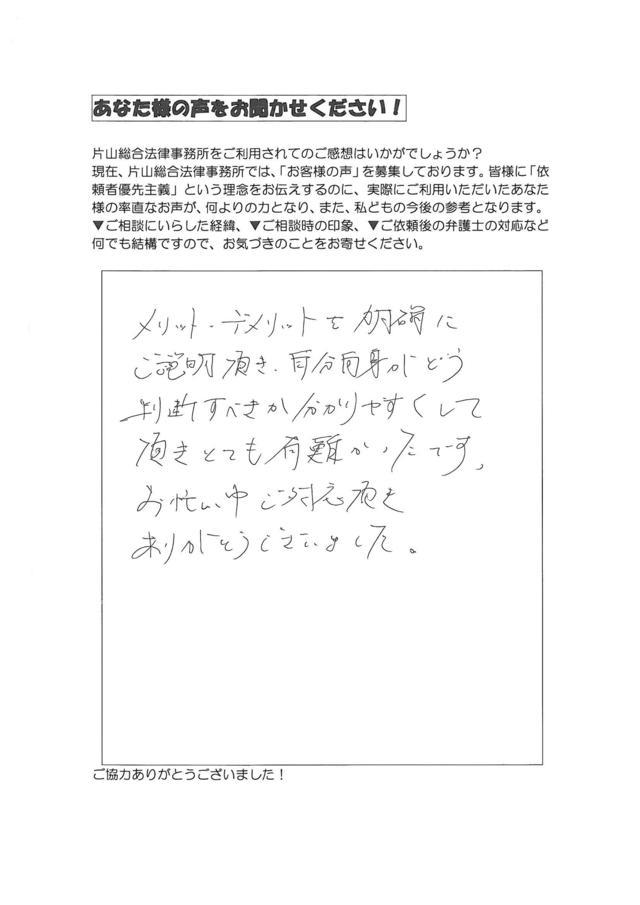 あなた様の声をお聞かせください！
片山総合法律事務所をご利用されてのご感想はいかがでしょうか？
現在、片山総合法律事務所では、「お客様の声」を募集しております。皆様に「依
頼者優先主義」という理念をお伝えするのに、実際にご利用いただいたあなた
様の率直なお声が、何よりの力となり、また、私どもの今後の参考となります。
▼ご相談にいらした経緯、▼ご相談時の印象、▼ご依頼後の弁護士の対応など
何でも結構ですので、お気づきのことをお寄せください。
メリット・デメリットを明確に
ご説明頂き、自分自身がどう
判断すべきか分かりやすくして
頂きとても有難かったです。
お忙しい中ご対応頂き
ありがとうございました。
ご協力ありがとうございました！